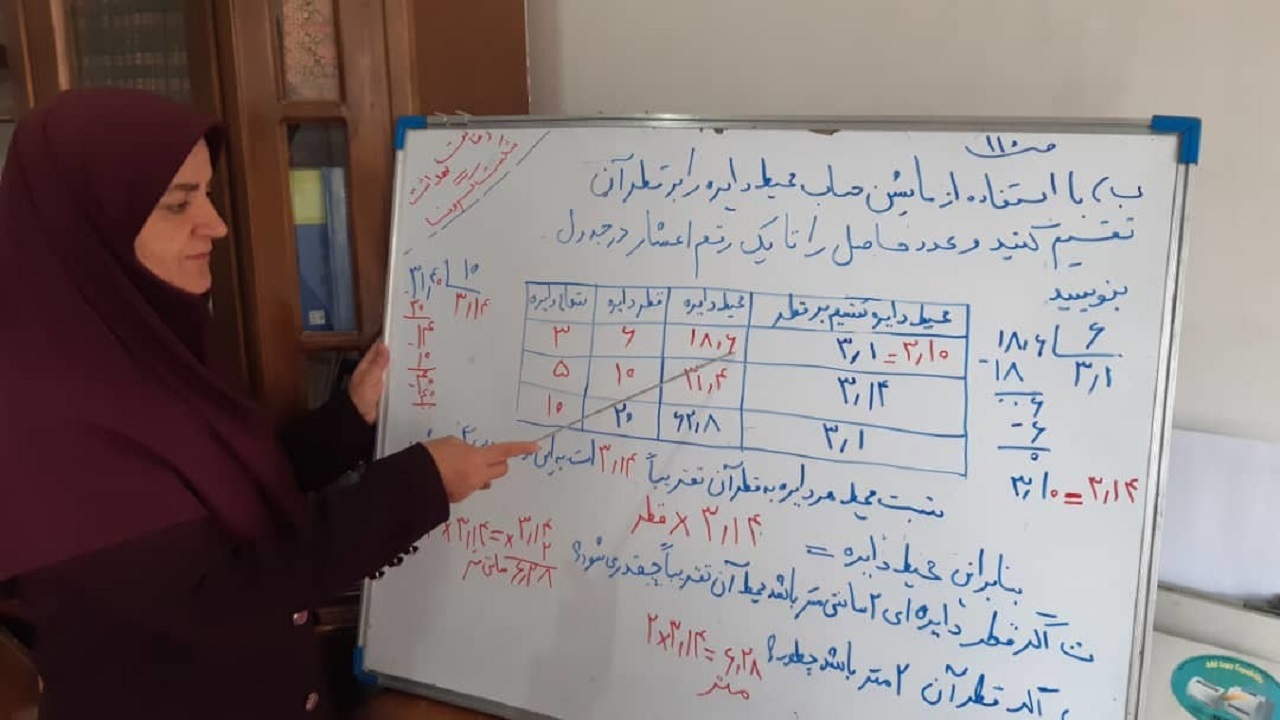 ص ۱۱۰
ب) با استفاده از ماشین حساب محیط دایره را بر قطر آن
تقسیم کنید و عدد حاصل را تا یک رقم اعشار در جدول
بنویسید
محیط دایره تقسیم بر قطر محیط دایره قطر دایره شعاع دایره
۳٫۱ = ۳٫۱۰ ۱۸٫۶ ۶ ۳
۳٫۱۴ ۳۱٫۴ ۱۰ ۵
۳٫۱ ۶۲٫۸ ۲۰ ۱۰
۱۸٫۶ ۶
-۱۸ ۳٫۱
۰۰۶
-۶
۰
۳٫۱۰ = ۳٫۱۴
۳۱٫۴۰ ۱۰
۳۰ ۳٫۱۴
۱۴
۱۰
۴۰
۴۰
نسبت محیط هر دایره به قطر آن تقریباً ۳٫۱۴ است به این
بنابراین محیط دایره = قطر × ۳٫۱۴
ت اگر قطر دایره ای ۲ سانتی متر باشد محیط آن تقریباً چقدر می شود؟
× ۳٫۱۴ = ۳٫۱۴
× ۲
۶٫۲۸ سانتی متر
اگر قطر آن ۲ متر باشد چطور؟ ۲×۳٫۱۴=۶٫۲۸
متر